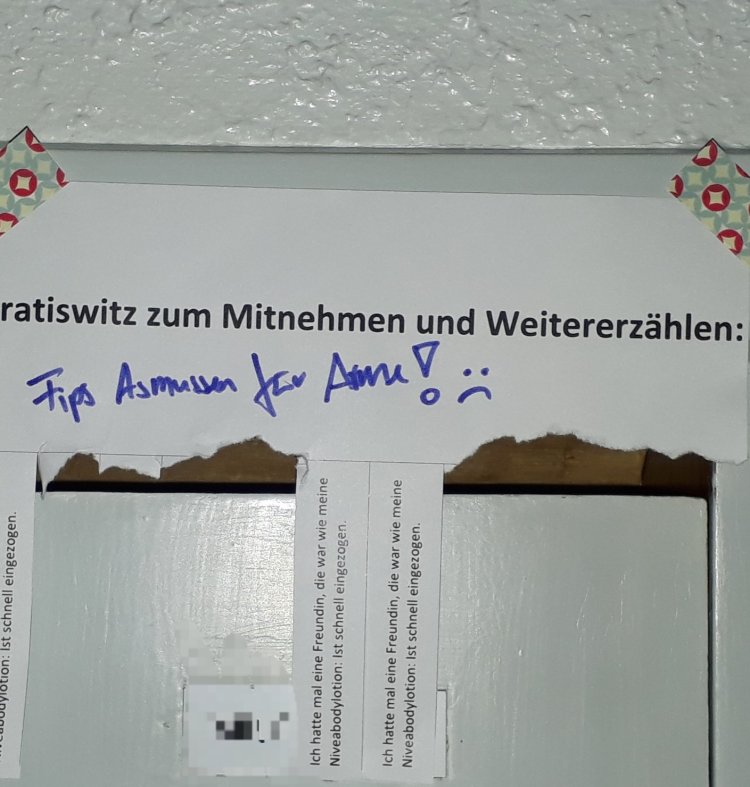 ratiswitz zum Mitnehmen und Weitererzählen:
Fips Asmussen für Arme! :(
Niveabodylotion: Ist schnell eingezogen.
Ich hatte mal eine Freundin, die war wie meine
Niveabodylotion: Ist schnell eingezogen.
Ich hatte mal eine Freundin, die war wie meine
Niveabodylotion: Ist schnell eingezogen.